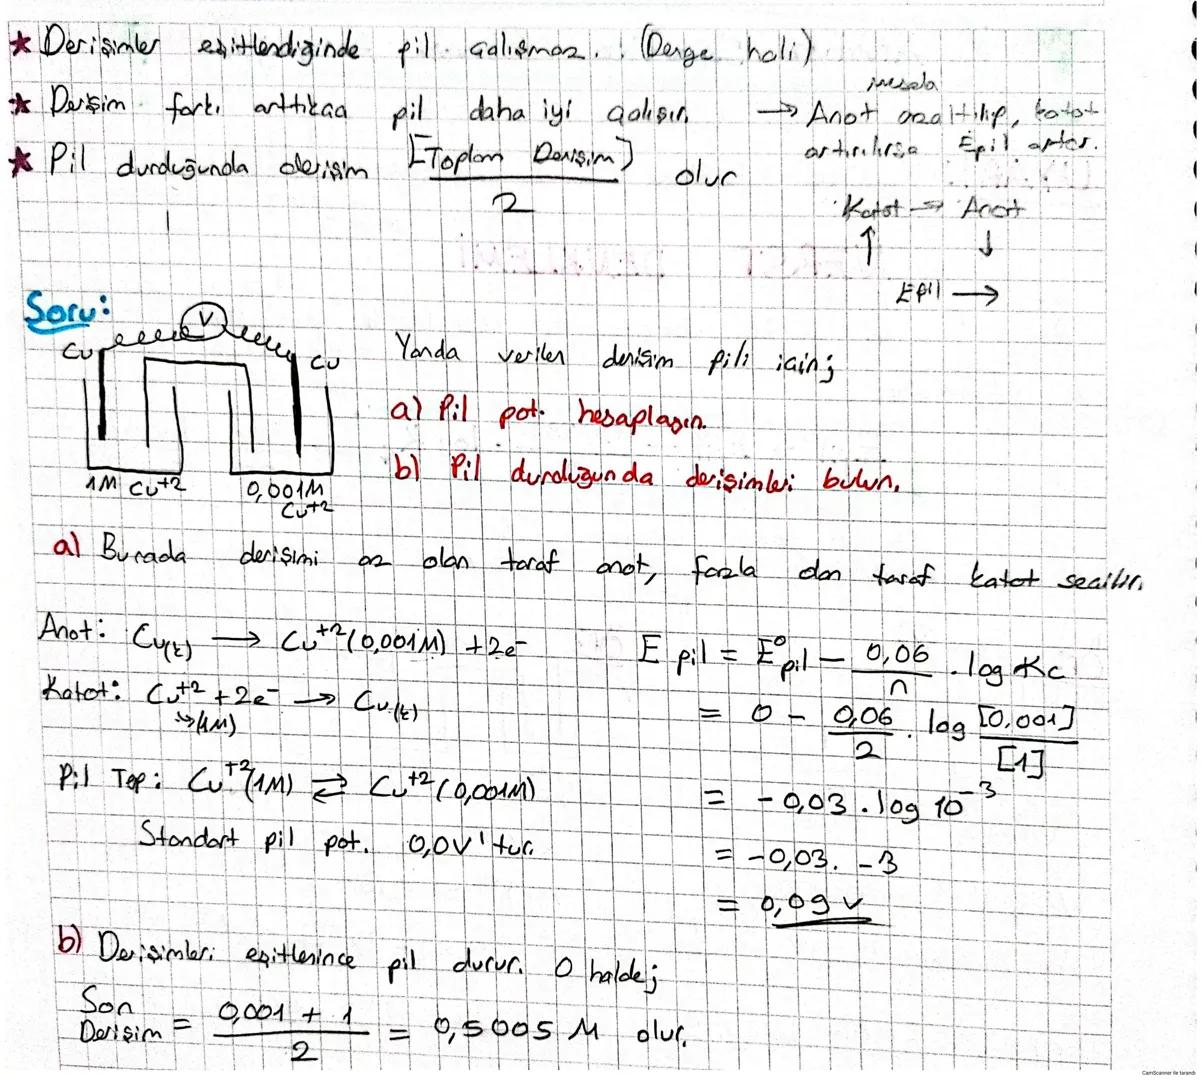 ★ Derişimler eşitlendiğinde pil çalışmaz. (Denge hali)
★ Derişim farkı arttıkça pil daha iyi çalışır. → mesela Anot azaltılıp, katot
artırılırsa Epil artar.
★ Pil durduğunda derişim [Toplam Derişim] / 2 olur
Katot → Anot
↑ ↓
Epil →
Soru:
V
Cu Cu
1M Cu+2
0,001M
Cu+2
Yanda verilen derişim pili için;
a) Pil pot. hesaplayın.
b) Pil durduğunda derişimleri bulun.
a) Burada derişimi az olan taraf anot, fazla olan taraf katot seçilir.
Anot: Cu(k) → Cu+2 (0,001M) + 2e-
Katot: Cu+2 + 2e- → Cu(k)
↳(1M)
Pil Tep: Cu+2(1M) ⇌ Cu+2(0,001M)
Standart pil pot. 0,0V'tur.
E pil = E°pil - 0,06/n . log Kc
= 0 - 0,06/2 . log [0,001]/[1]
= -0,03 . log 10-3
= -0,03 . -3
= 0,09 V
b) Derişimleri eşitlenince pil durur. O halde;
Son Derişim = 0,001 + 1 / 2 = 0,5005 M olur.
CamScanner ile tarandı